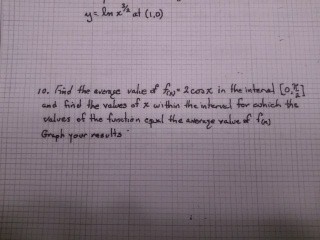 y = ln x^3/2 at (1,0)
10. Find the average value of f(x) = 2 cosx in the interval [0, π/2]
and find the values of x within the interval for which the
values of the function equal the average value of f(x)
Graph your results